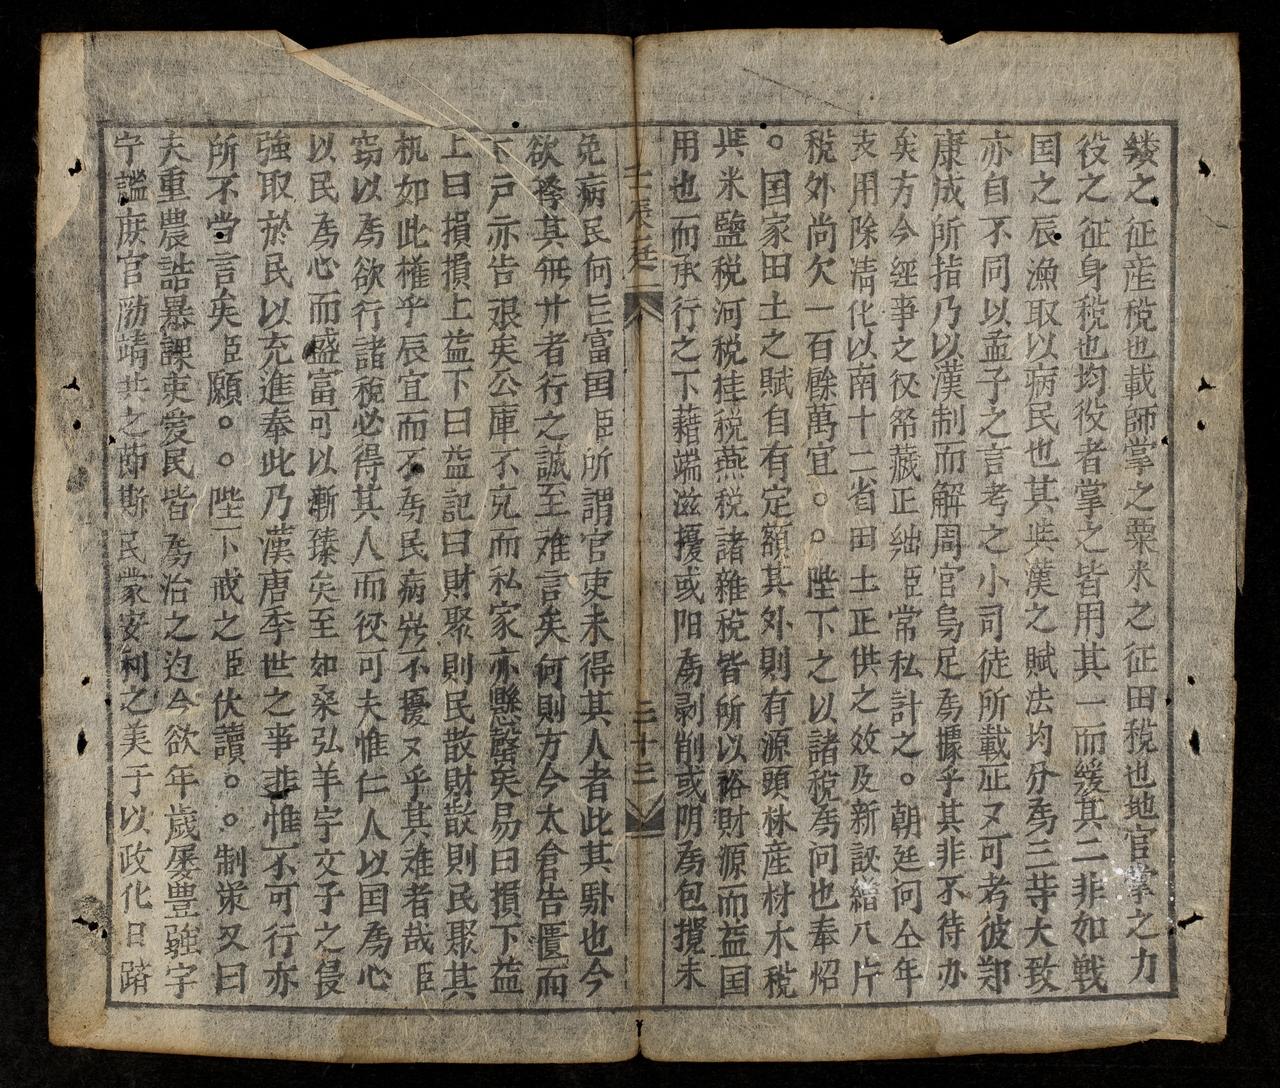 縷之征産稅也載師掌之粟米之征田稅也地官掌之力
役之征身稅也均役者掌之皆用其一而緩其二非如戦
国之辰漁取以病民也其與漢之賦法均分爲三等大致
亦自不同以孟子之言考之小司徒所載征又可考彼鄭
康成所指乃以漢制而解周官烏足爲據乎其非不待办
矣方今經事之役帑蔵正絀臣常私計之。朝廷向仝年
支用除清化以南十二省田土正供之效及新設絡八片
稅外尚欠一百餘萬宜。。陛下之以諸稅爲问也奉炤
。国家田土之賦自有定額其外則有源頭林産材木稅
與米鹽稅河稅桂稅燕稅諸雜稅皆所以裕財源而益国
用也而承行之下藉端滋擾或阳爲剥削或阴爲包攬未
壬辰庭 二十三
免病民何㠯富国臣所謂官吏未得其人者此其卦也今
欲擇其無廿者行之誠至难言矣何則方今太倉告匱而
下戸亦告艰矣公庫不克而私家亦懸罄矣易曰損下益
上曰損損上益下曰益記曰財聚則民散財散則民聚其
机如此權乎辰宜而不爲民病岂不擾又乎其难者哉臣
窃以爲欲行諸稅必得其人而後可夫惟仁人以国爲心
以民爲心而盛富可以漸臻矣至如桑弘羊宇文子之長
強取於民以充進奉此乃漢唐季世之亊非惟不可行亦
所不當言矣臣願。。陛下戒之臣伏讀。。制策又曰
夫重農詰暴課吏爱民皆爲治之迫今欲年歲屢豊強字
宁謐庶官励靖共之節斯民蒙安利之美于以政化日躋